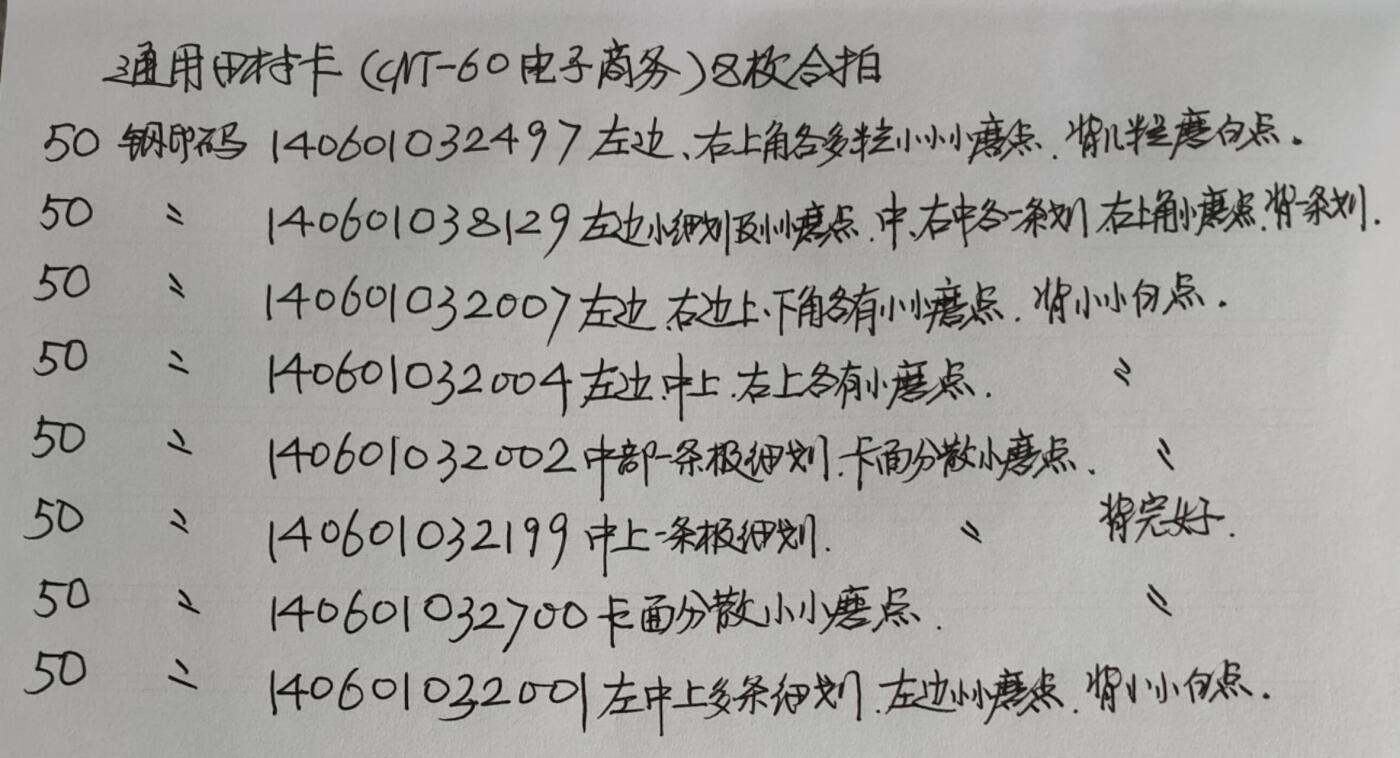 通用田村卡(CNT-60电子商务)8枚合拍
50 钢印码 140601032497左边、右上角各多粒小小小磨点.背几粒磨白点.
50 〃 140601038129左边小细划及小小磨点.中、右中各一条划.右上角小磨点.背一条划.
50 〃 140601032007左边.右边上、下角各有小小磨点.背小小白点.
50 〃 140601032004左边.中上.右上各有小磨点. 〃
50 〃 140601032002中部一条极细划.卡面分散小磨点. 〃
50 〃 140601032199中上一条极细划. 〃 背完好.
50 〃 140601032700卡面分散小小磨点. 〃
50 〃 140601032001左中上多条细划.左边小小磨点.背小小白点.